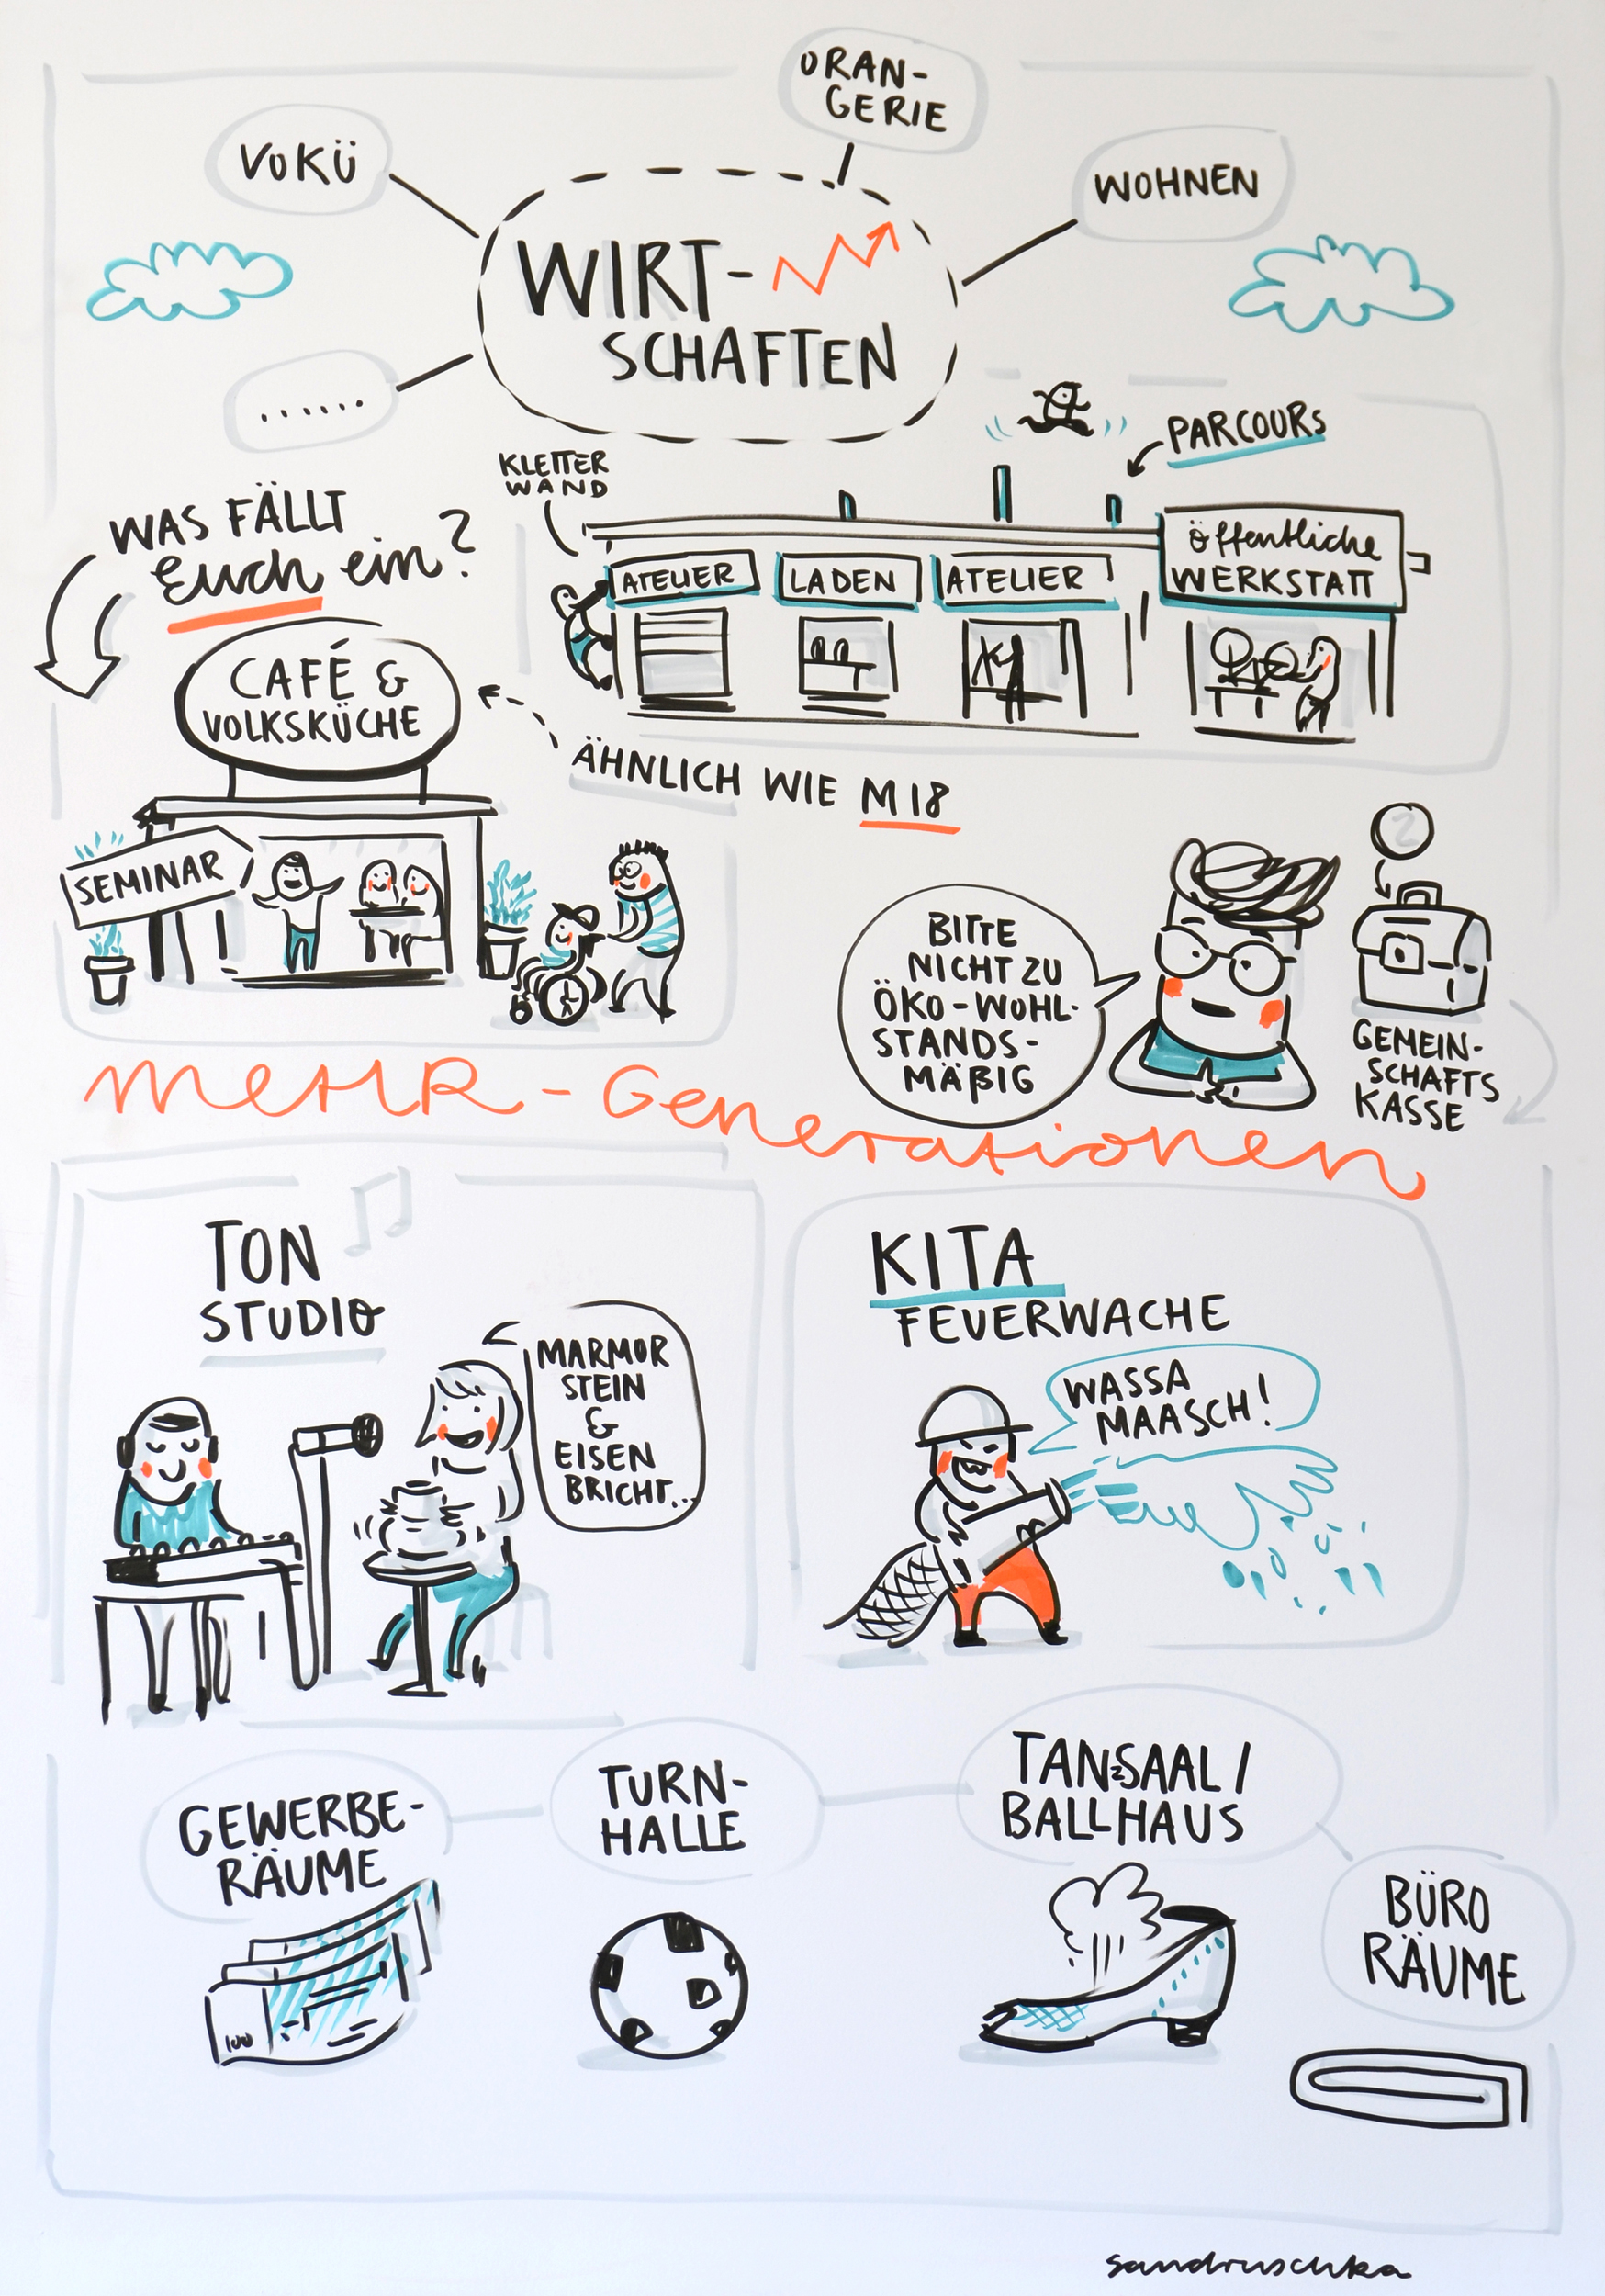 ORAN-
GERIE
VOKÜ
WOHNEN
WIRT-
SCHAFTEN
......
PARCOURS
KLETTER
WAND
WAS FÄLLT
Euch ein?
ATELIER
LADEN
ATELIER
öffentliche
WERKSTATT
CAFÉ &
VOLKSKÜCHE
ÄHNLICH WIE M18
SEMINAR
2
BITTE
NICHT ZU
ÖKO-WOHL-
STANDS-
MÄßIG
GEMEIN-
SCHAFTS
KASSE
MEHR-Generationen
TON
STUDIO
MARMOR
STEIN
&
EISEN
BRICHT...
KITA
FEUERWACHE
WASSA
MAASCH!
GEWERBE-
RÄUME
100
TURN-
HALLE
TANZSAAL/
BALLHAUS
BÜRO
RÄUME
sandruschka